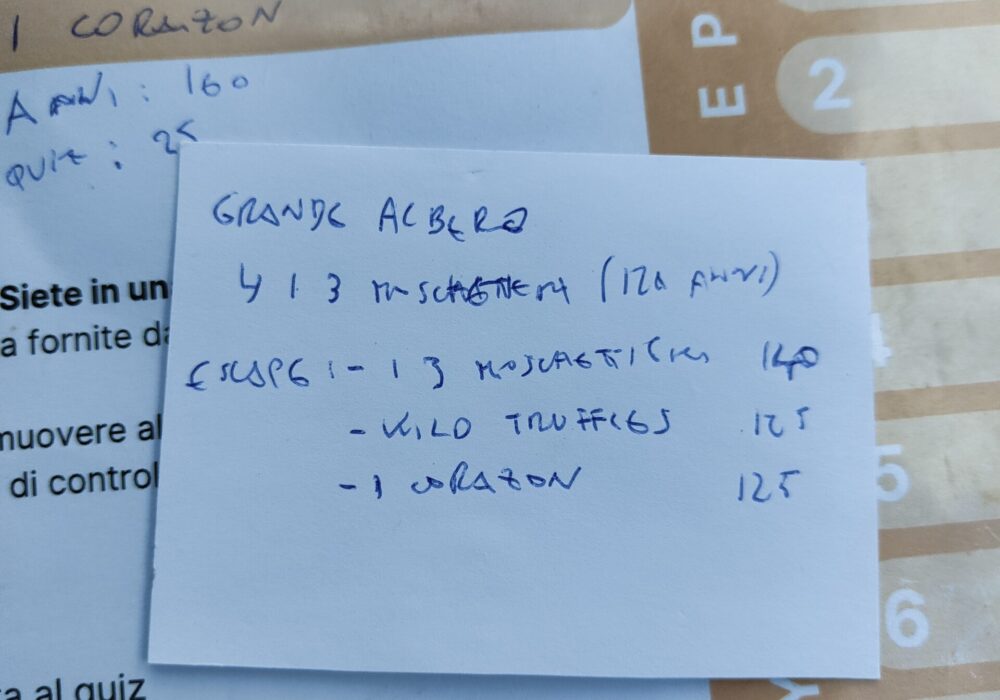 1 CORAZON
ANNI: 160
QUIZ: 25
E P
2
GRANDE ALBERO
4 I 3 MOSCHETTIERI (120 ANNI)
ESCAPE: - I 3 MOSCHETTIERI 140
- KILO TRUFFLES 125
- 1 CORAZON 125
Siete in un
a fornite da
muovere al
di control
5
6
ta al quiz